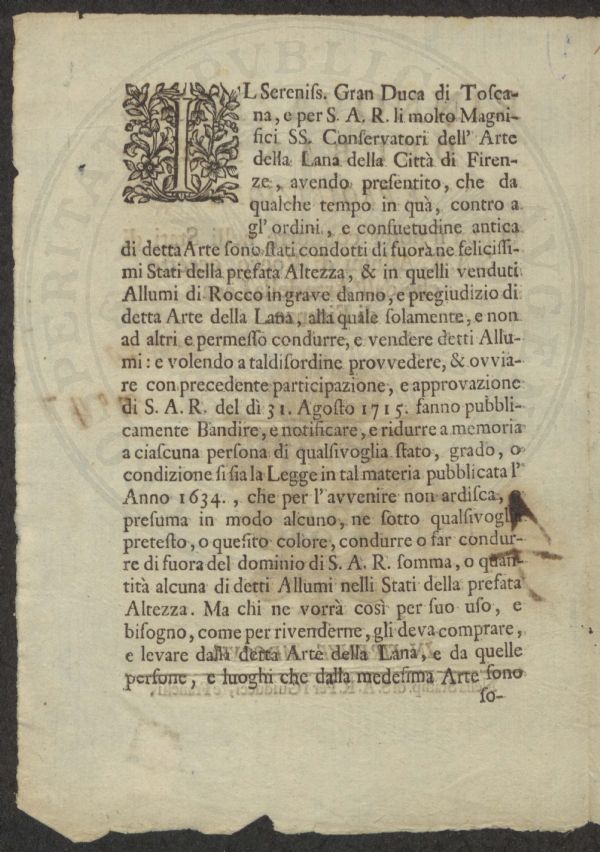 IL Sereniſs. Gran Duca di Toſca-
na, e per S. A. R. li molto Magni-
fici SS. Conſervatori dell' Arte
della Lana della Città di Firen-
ze, avendo preſentito, che da
qualche tempo in quà, contro a
gl' ordini, e conſuetudine antica
di detta Arte ſono ſtati condotti di fuora ne feliciſſi-
mi Stati della prefata Altezza, & in quelli venduti
Allumi di Rocco in grave danno, e pregiudizio di
detta Arte della Lana, alla quale ſolamente, e non
ad altri e permeſſo condurre, e vendere detti Allu-
mi: e volendo a tal diſordine provvedere, & ovvia-
re con precedente participazione, e approvazione
di S. A. R. del dì 31. Agoſto 1715. fanno pubbli-
camente Bandire, e notificare, e ridurre a memoria
a ciaſcuna perſona di qualſivoglia ſtato, grado, o
condizione ſi ſia la Legge in tal materia pubblicata l'
Anno 1634., che per l'avvenire non ardiſca,
preſuma in modo alcuno, ne ſotto qualſivoglia
preteſto, o queſito colore, condurre o far condur-
re di fuora del dominio di S. A. R. ſomma, o quan-
tità alcuna di detti Allumi nelli Stati della prefata
Altezza. Ma chi ne vorrà così per ſuo uſo, e
biſogno, come per rivenderne, gli deva comprare,
e levare dalla detta Arte della Lana, e da quelle
perſone, e luoghi che dalla medeſima Arte ſono
ſo-